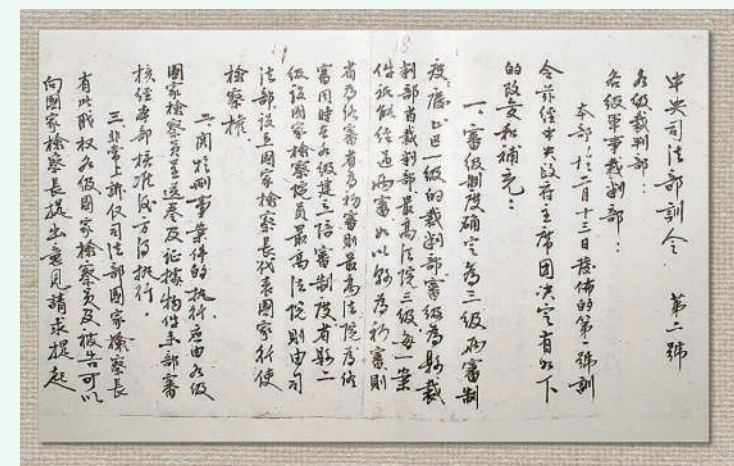 中央司法部訓令 第二號
各級裁判部：
各級軍事裁判部：
本部於二月十三日發佈的第一號訓
令茲經中央政府主席團决定有如下
的改变和補充：
一、審級制度確定為三級兩審制
度，廢止區一級的裁判部審級為縣裁
判部省裁判部最高法院三級每一案
件祇能經過兩審如以縣為初審則
省為終審省為初審則最高法院為終
審同時在各級建立陪審制度省縣二
級設國家檢察員最高法院則由司
法部設立國家檢察長代表國家行使
檢察權。
二、関於刑事案件的执行应由各級
國家檢察員呈送卷及証據物件本部審
核経本部核准後方得执行，
三非常上訴仅司法部國家檢察長
有此职权各級國家檢察員及被告可以
向國家檢察長提出意見請求提起